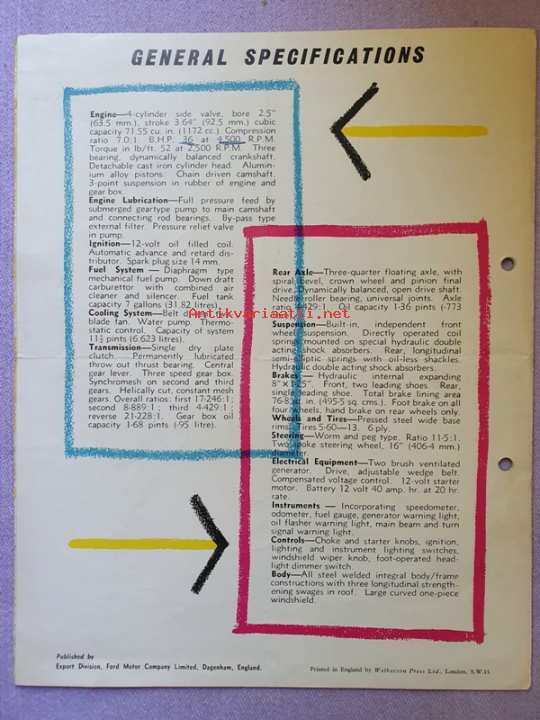 GENERAL SPECIFICATIONS
Engine—4-cylinder side valve, bore 2.5"
(63.5 mm.), stroke 3·64" (92.5 mm.) cubic
capacity 71.55 cu. in. (1172 cc.) Compression
ratio 7.0:1 B.H.P. 36 at 4,500 R.P.M.
Torque in lb/ft. 52 at 2,500 R.P.M. Three
bearing, dynamically balanced crankshaft.
Detachable cast iron cylinder head. Alumin-
ium alloy pistons. Chain driven camshaft.
3-point suspension in rubber of engine and
gear box.
Engine Lubrication—Full pressure feed by
submerged geartype pump to main camshaft
and connecting rod bearings. By-pass type
external filter. Pressure relief valve
in pump.
Ignition—12-volt oil filled coil.
Automatic advance and retard dis-
tributor. Spark plug size 14 mm.
Fuel System — Diaphragm type
mechanical fuel pump. Down draft
carburettor with combined air
cleaner and silencer. Fuel tank
capacity 7 gallons (31.82 litres).
Cooling System—Belt
blade fan. Water pump. Thermo-
static control. Capacity of system
pints (6.623 litres).
Transmission—Single dry plate
clutch. Permanently lubricated
throw out thrust bearing. Central
gear lever. Three speed gear box.
Synchromesh on second and third
gears. Helically cut, constant mesh
gears. Overall ratios: first 17·246:1;
second 8·889:1; third 4·429:1;
reverse 21·228:1. Gear box oil
capacity 1·68 pints (·95 litre).
Rear Axle—Three-quarter floating axle, with
spiral bevel, crown wheel and pinion final
drive. Dynamically balanced, open drive shaft.
Needle roller bearing, universal joints. Axle
ratio 4·429:1. Oil capacity 1·36 pints (·773
Antikvariaatti.net
Suspension—Built-in, independent front
wheel suspension. Directly operated coil
springs mounted on special hydraulic double
acting shock absorbers. Rear, longitudinal
semi-elliptic springs with oil-less shackles.
Hydraulic double acting shock absorbers.
Brakes — Hydraulic internal expanding
8" × Front, two leading shoes. Rear,
single leading shoe. Total brake lining area
sq. in. (495·5 sq. cms.). Foot brake on all
four wheels, hand brake on rear wheels only.
Wheels and Tires—Pressed steel wide base
rims. Tires 5·60—13. 6 ply.
Steering—Worm and peg type. Ratio 11·5:1.
Two spoke steering wheel, 16" (406·4 mm.)
diameter.
Electrical Equipment—Two brush ventilated
generator. Drive, adjustable wedge belt.
Compensated voltage control. 12-volt starter
motor. Battery 12 volt 40 amp. hr. at 20 hr.
rate.
Instruments — Incorporating speedometer,
odometer, fuel gauge, generator warning light,
oil flasher warning light, main beam and turn
signal warning light.
Controls—Choke and starter knobs, ignition,
lighting and instrument lighting switches,
windshield wiper knob, foot-operated head-
light dimmer switch.
Body—All steel welded integral body/frame
constructions with three longitudinal strength-
ening swages in roof. Large curved one-piece
windshield.
Published by
Export Division, Ford Motor Company Limited, Dagenham, England.
Printed in England by Waterson Press Ltd., London, S.W.15